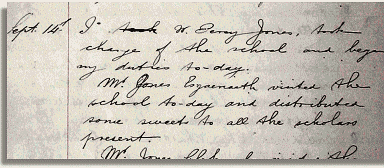 Sept. 14th I took W. Percy Jones, took
charge of the school and began
my duties to-day.
Mr. Jones visited the
school to-day and distributed
some sweets to all the scholars
present.
Mr. Jones visited the